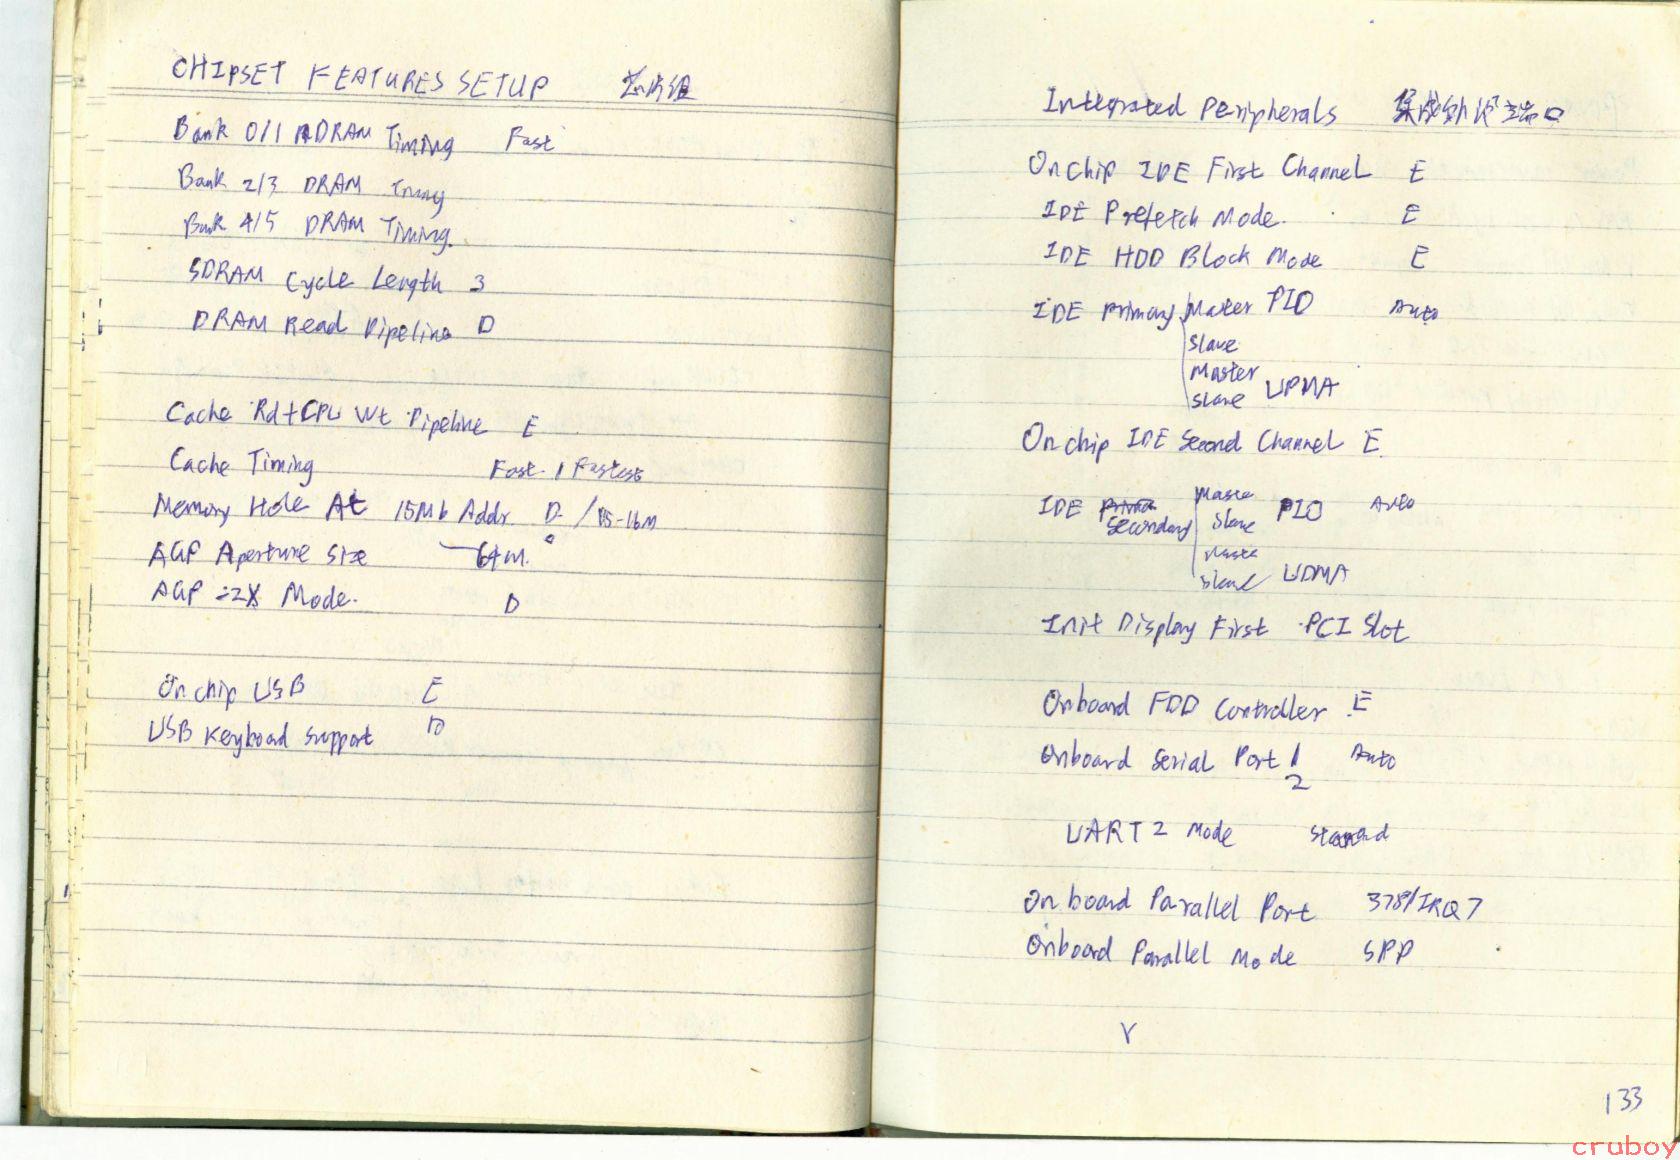 CHIPSET FEATURES SETUP 芯片组
Bank 0/1 DRAM Timing Fast
Bank 2/3 DRAM Timing
Bank 4/5 DRAM Timing.
SDRAM Cycle Length 3
DRAM Read Pipeline D
Cache Rd+CPU Wt Pipeline E
Cache Timing Fast / Fastest
Memory Hole At 15Mb Addr D / 15-16M
AGP Aperture Size 64M.
AGP -2X Mode. D
Onchip USB E
USB Keyboad Support D
Integrated Peripherals 集成外设端口
Onchip IDE First Channel E
IDE Prefetch Mode. E
IDE HDD Block Mode E
IDE Primary Master PIO Auto
Slave
Master
Slave UDMA
Onchip IDE Second Channel E
IDE Secondary Maste PIO Auto
Slave
Maste
Slave UDMA
Init Display First PCI Slot
Onboard FDD Controller E
Onboard Serial Port 1 Auto
2
UART 2 Mode
Onboard Parallel Port 378/IRQ7
Onboard Parallel Mode SPP
133
cruboy